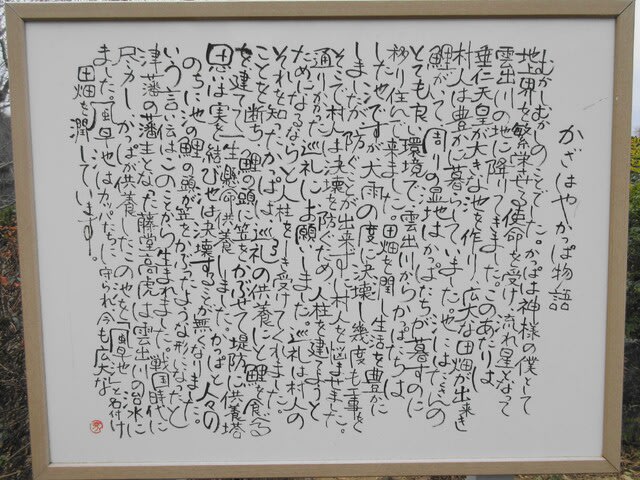 かざはやかっぱ物語
むかしむかしのことでした。かっぱは神様の僕として
地界を繁栄させる使命を受け流れ星となって
雲出川の地に降りてきました。このあたりは
垂仁天皇が大きな池を作り広大な田畑が出来
村人は豊かに暮らしていました。池にはたくさんの
鯉がいて周りの湿地はかっぱたちが暮すのに
とても良い環境で、雲出川からかっぱたちは
移り住んで来ました。田畑を潤し生活を豊かに
した池ですが大雨の度に決壊し幾度も工事を
しましたが防ぐことが出来ずに村人を悩ませました。
そこで村人は決壊を防ぐため人柱を建てようと
通りかかった巡礼にお願いしました。巡礼は村人の
ためになるならと人柱をひき受けてくれました。
それを知ったかっぱは巡礼の供養にと鯉を食べる
ことを断ち鯉の頭に笠をかぶせて堤防に供養塔
を建てて一生懸命供養しました。かっぱと人々の
思いは実を結び池は決壊することが無くなりました。
のちに池の鯉の頭が笠をかぶったような形になったと
いう言い伝えはこのことから生まれました。戦国時代に
津藩の藩主となった藤堂高虎は雲出川の治水に
尽力し、かっぱが供養したこの池を「風早池」と名付け
ました。「風早池」はカッパたちに守られ今も広大な
田畑を潤しています。